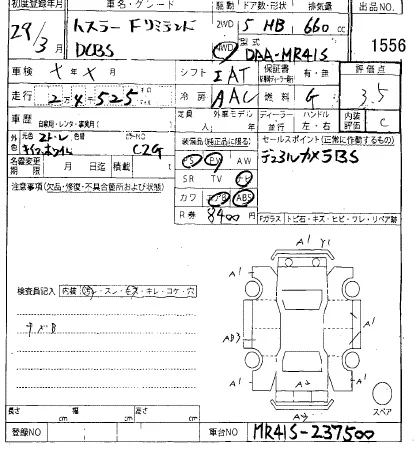 初度登録年月 車名・グレード 駆動 ドア数・形状 排気量 出品NO.
29/3月 ハスラー Fリミテッド 2WD 5 HB 660 cc
DCBS 4WD 型式 DAA-MR41S 1556
車検 x年x月 シフト IAT 保証書 有・無 評価点
走行 2万4千525 冷房 AAC 燃料 G 3.5
車歴 自家用・レンタ・事業用( ) 定員 人 外車モデル 年 ディーラー・並行 ハンドル 左・右 内装評価 C
外色 元色 2トーン 色替 カラーNO C2G 装備品(純正品に限る) セールスポイント(正常に作動するもの)
PS PW AW デュアルカメラBS
名義変更期限 月 日迄 積載( ) SR TV ナビ
注意事項(欠品・修復・不具合箇所および状態) カワ エアB ABS
R券 8400 Fガラス トビ石・キズ・ヒビ・ワレ・リペア跡
A Y1
A1 A1
検査員記入 内装 汚レ・スレ・キズ・キレ・コゲ・穴
A1
ナビB AB3 A1
A1 A1
スペア
長さ cm 幅 cm 高さ cm
登録NO 車台NO MR41S-237500